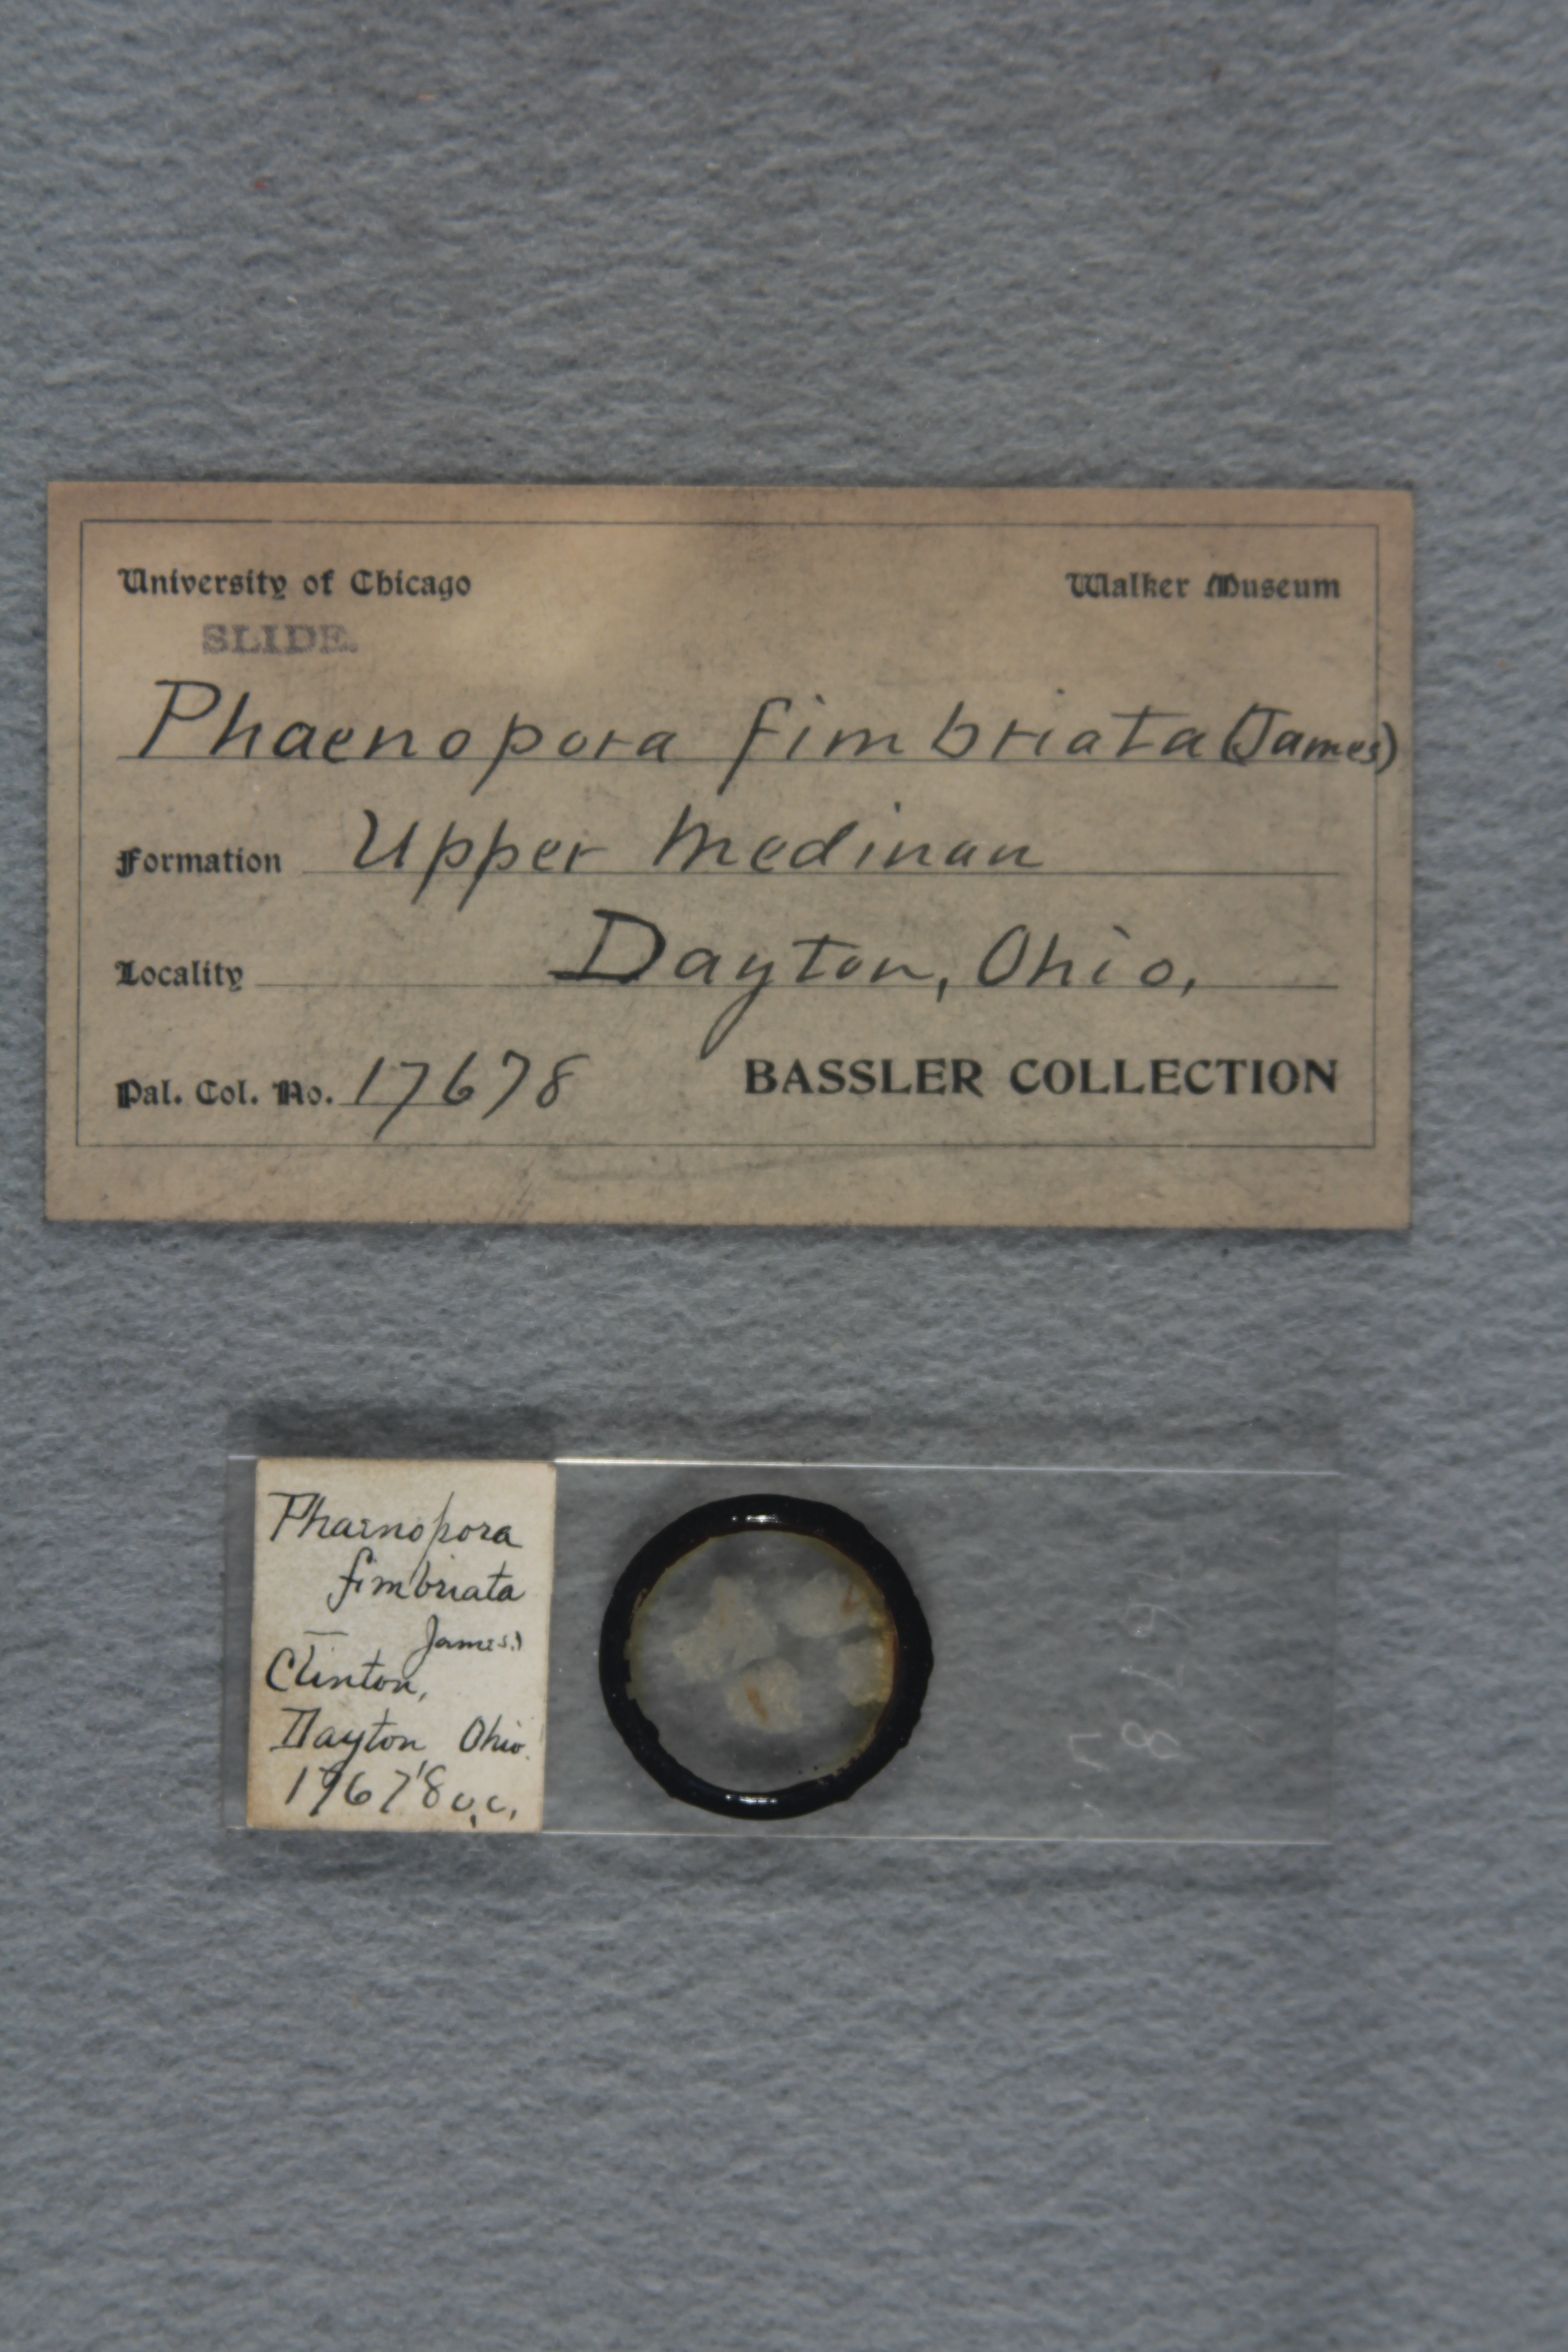 University of Chicago Walker Museum
SLIDE.
Phaenopora fimbriata (James)
Formation Upper Medinan
Locality Dayton, Ohio,
Pal. Col. No. 17678 BASSLER COLLECTION
Phaenopora
fimbriata
James.)
Clinton,
Dayton Ohio.
17678 U.C.
17678